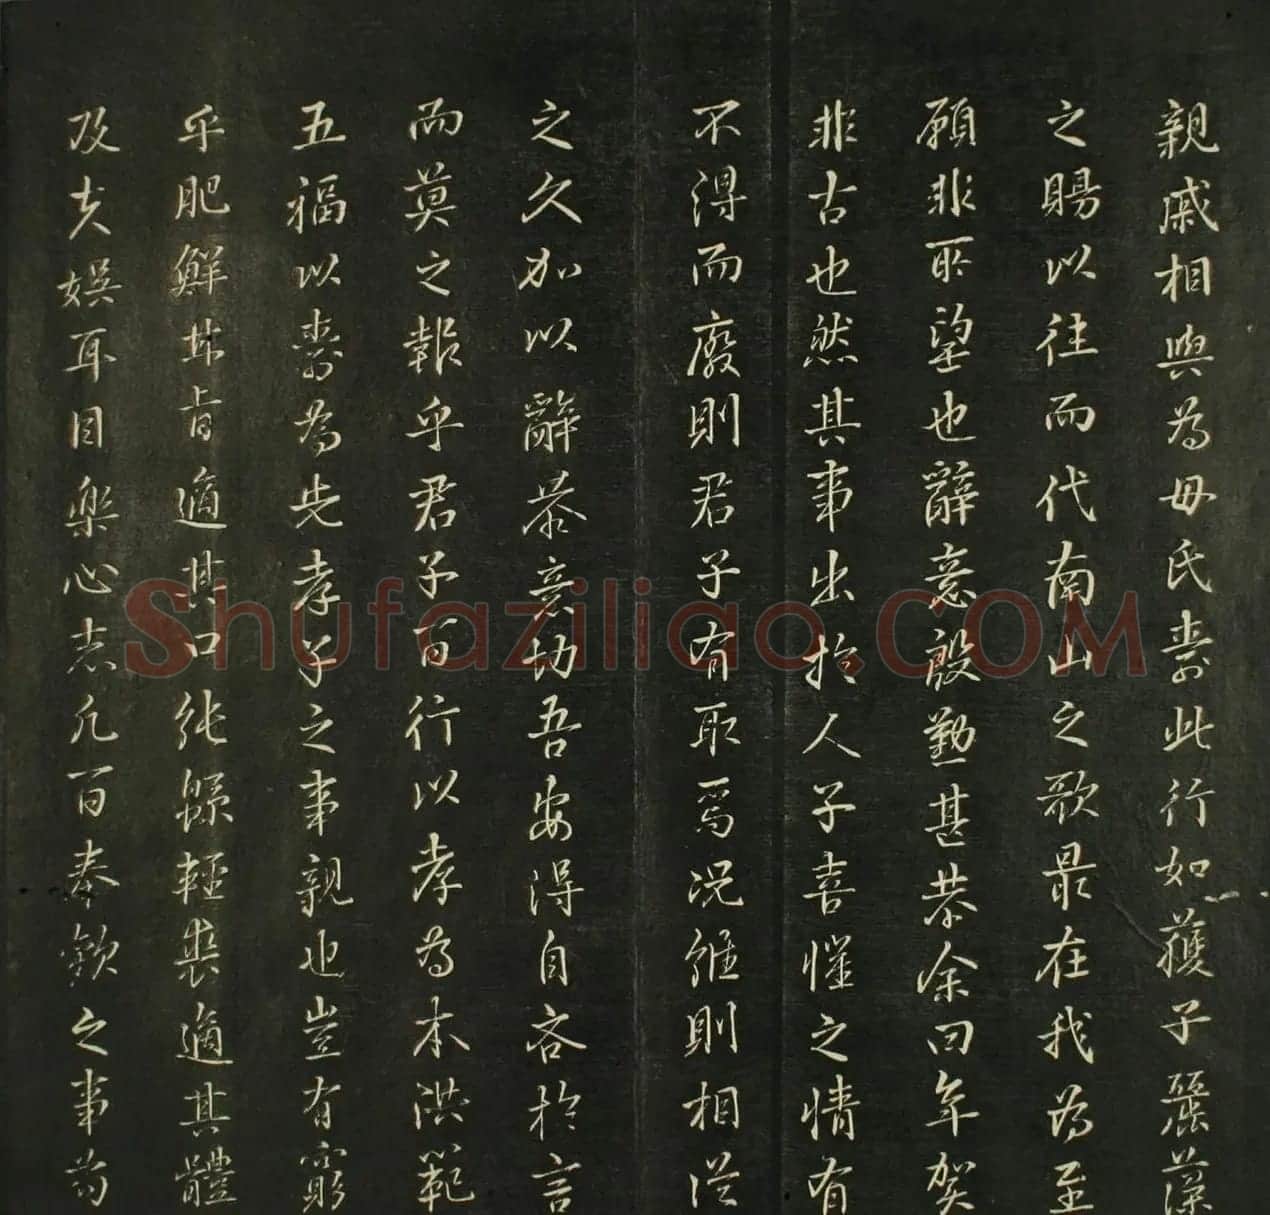 親戚相與為母氏壽此行如獲子麗藻
之賜以往而代南山之歌最在我為至
願非所望也辭意殷勤甚恭余曰年賀
非古也然其事出於人子喜懼之情有
不得而廢則君子有取焉況維則相從
之久加以辭恭意切吾安得自吝於言
而莫之報乎君子百行以孝為本洪範
五福以壽為先孝子之事親也豈有窮
乎肥鮮甘旨適其口純綿輕裘適其體
及夫娛耳目樂心志凡百奉歡之事苟
Shufaziliao.COM